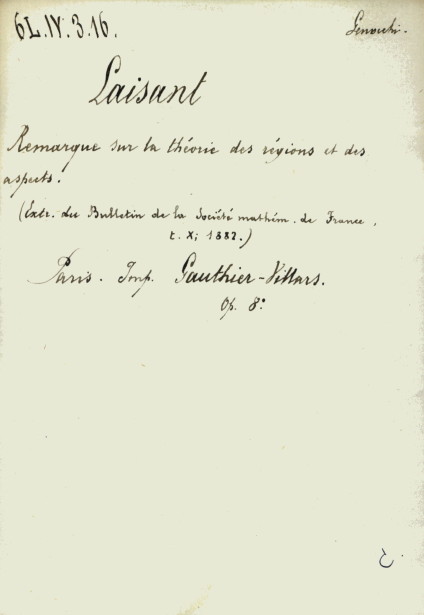 6L.IV.3.16.
Genocchi.
Laisant
Remarque sur la théorie des régions et des
aspects.
(Extr. du Bulletin de la Société mathém. de France,
t. X; 1882.)
Paris. Imp. Gauthier-Villars.
Op. 8°